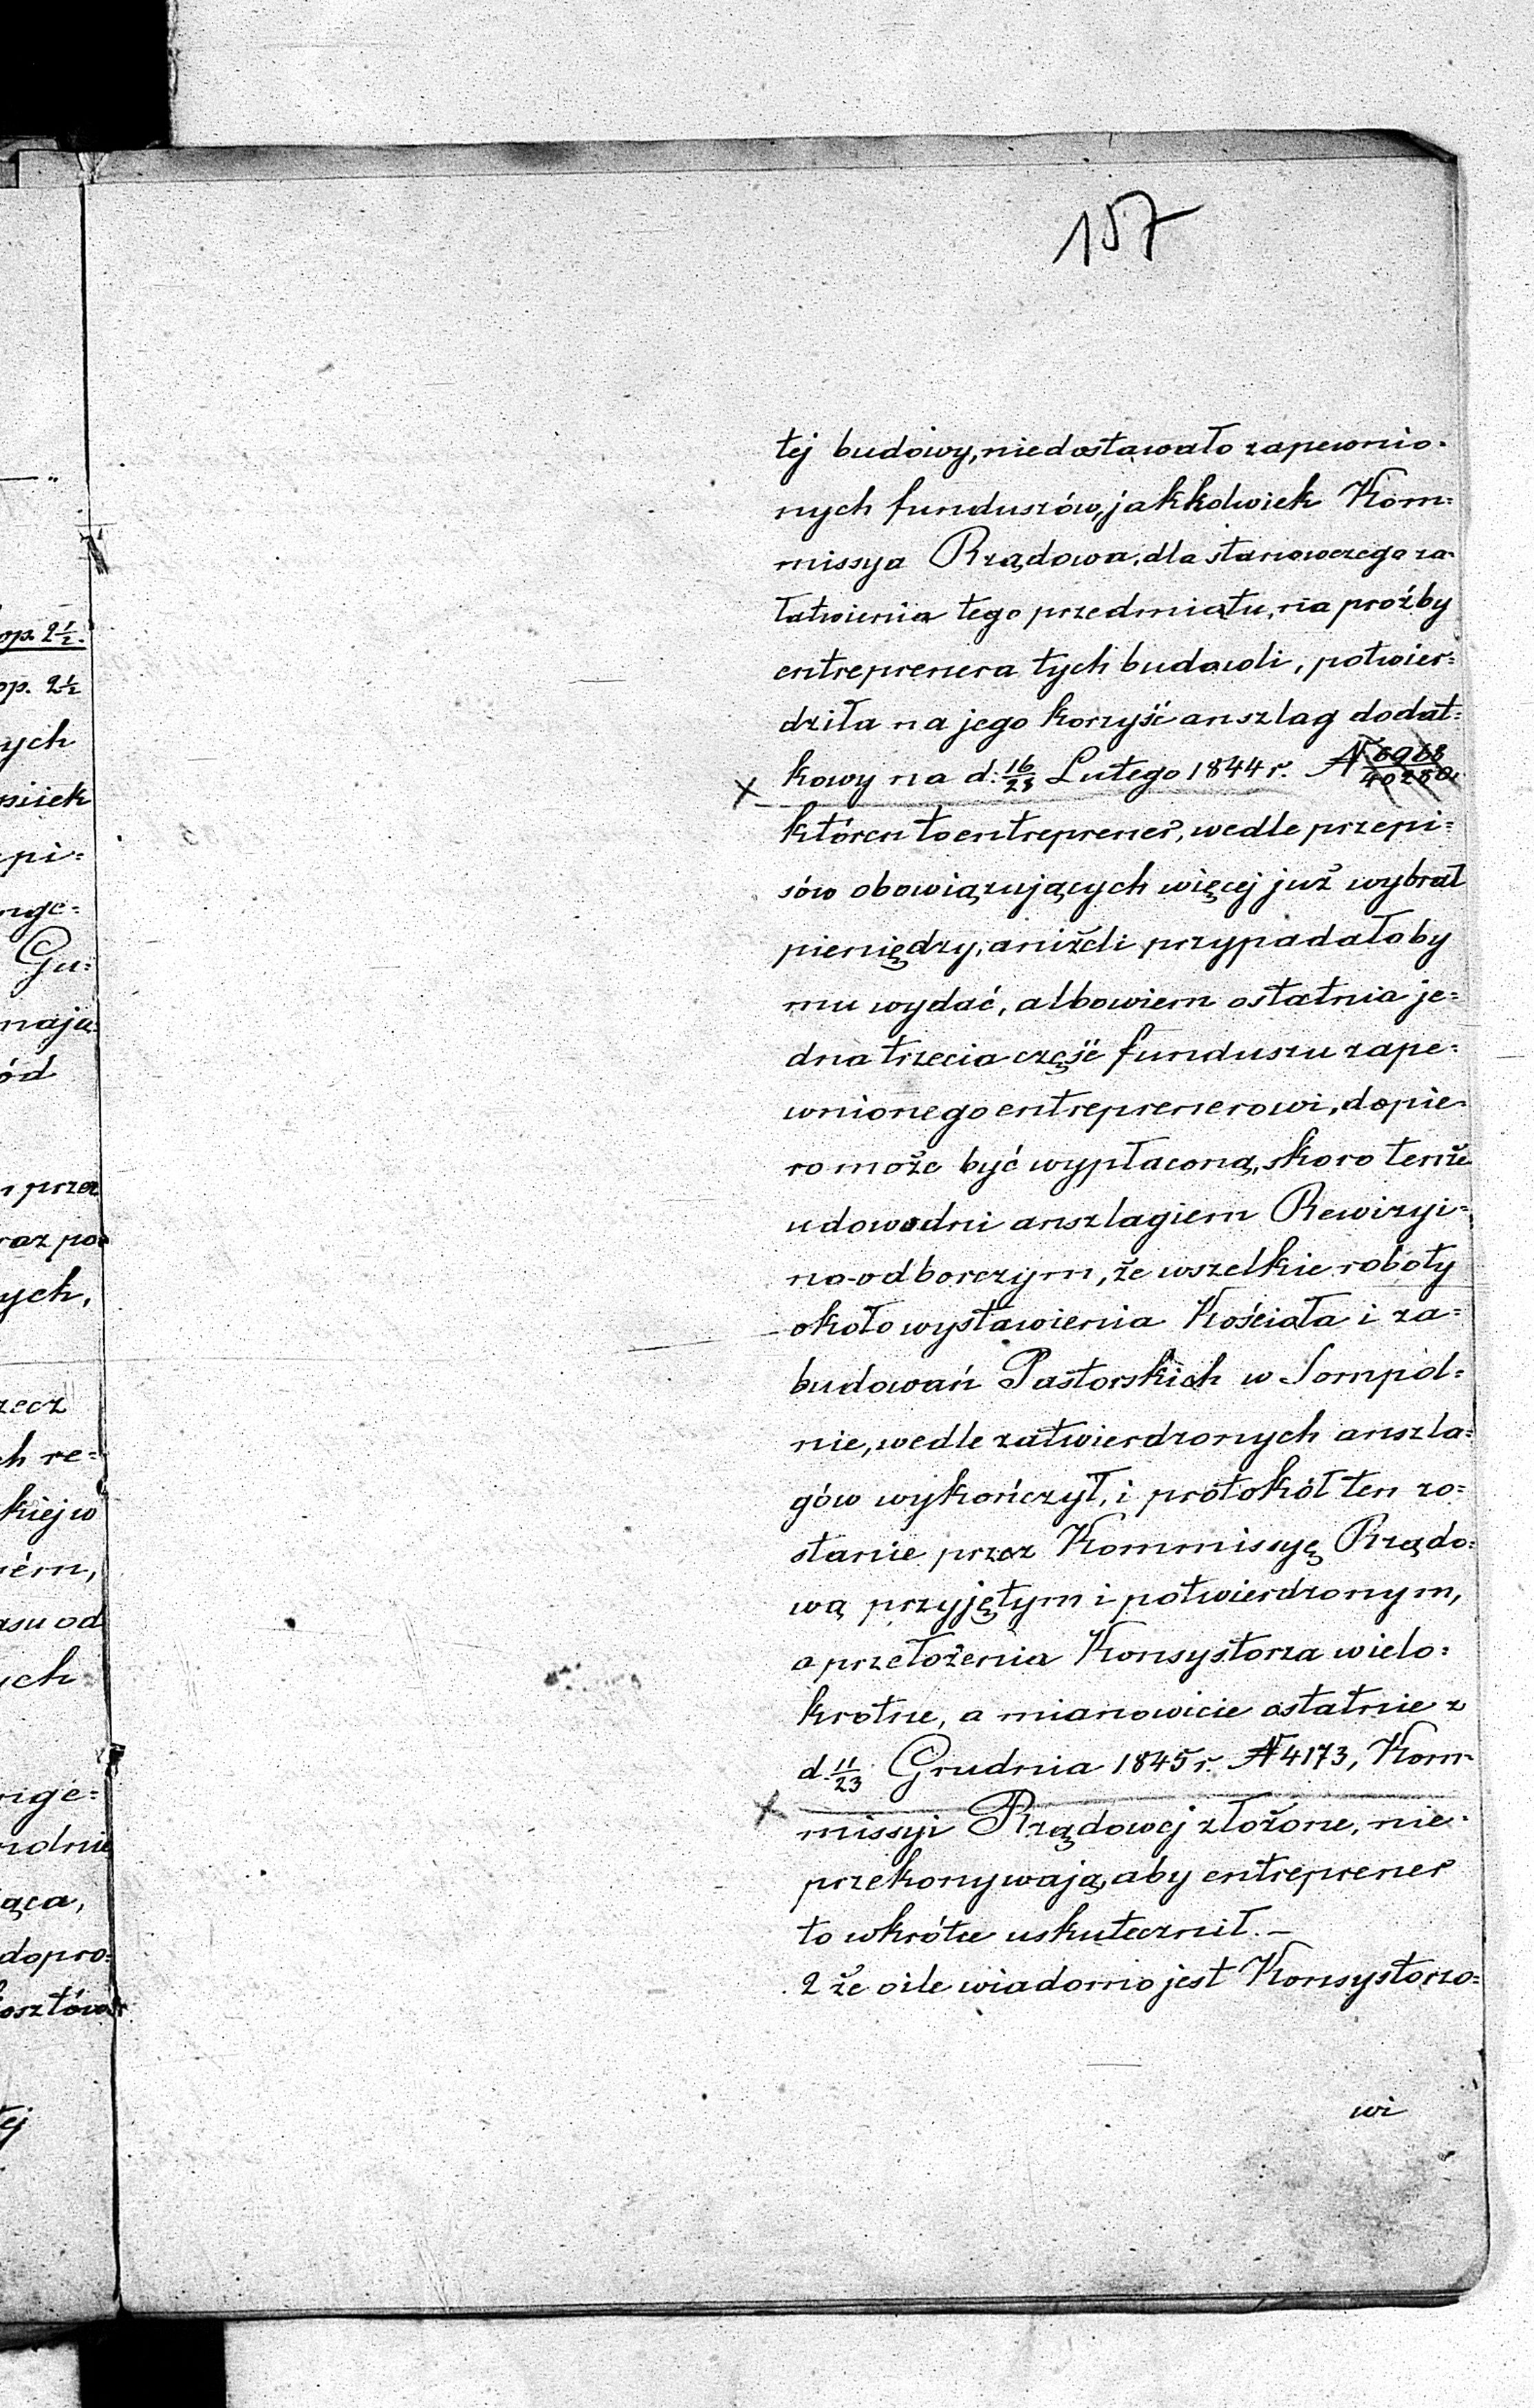 157
tej budowy, niedostawało zapewnio=
nych funduszów, jakkolwiek Kom=
missya Rządowa, dla stanowczego za=
łatwienia tego przedmiatu, na proźby
entreprenera tych budowli, potwier=
dziła na jego korzyść anszlag dodat=
kowy na d: 16/28 Lutego 1844 r. N 6968/40280
któren to entreprener, wedle przepi=
sów obowiązujących więcej już wybrał
pieniędzy, aniżeli przypadałoby
mu wydać, albowiem ostatnia je=
dna trzecia część funduszu zape=
wnionego entreprenerowi, dopie=
ro może być wypłaconą, skoro tenże
udowodni anszlagiem Rewizyi=
no-odborczym, że wszelkie roboty
około wystawienia Kościoła i za=
budowań Pastorskich w Sompol=
nie, wedle zatwierdzonych anszla=
gów wykończył, i protokół ten zo=
stanie przez Kommissyę Rządo=
wą przyjętym i potwierdzonym,
a przełożenia Konsystorza wielo=
krotne, a mianowicie ostatnie z
d. 11/23 Grudnia 1845 r. N 4173, Kom=
missyi Rządowej złożone, nie=
przekonywają, aby entreprener
to wkrótce uskutecznił. —
2 że oile wiadomo jest Konsystorzo=
wi
op. 2½.
op. 2½
ych
pi=
Gu=
ód
przez
raz po=
ych,
zecz
ch re=
kiej w
asu od
ych
ąca,
dopro=
osztów
ej